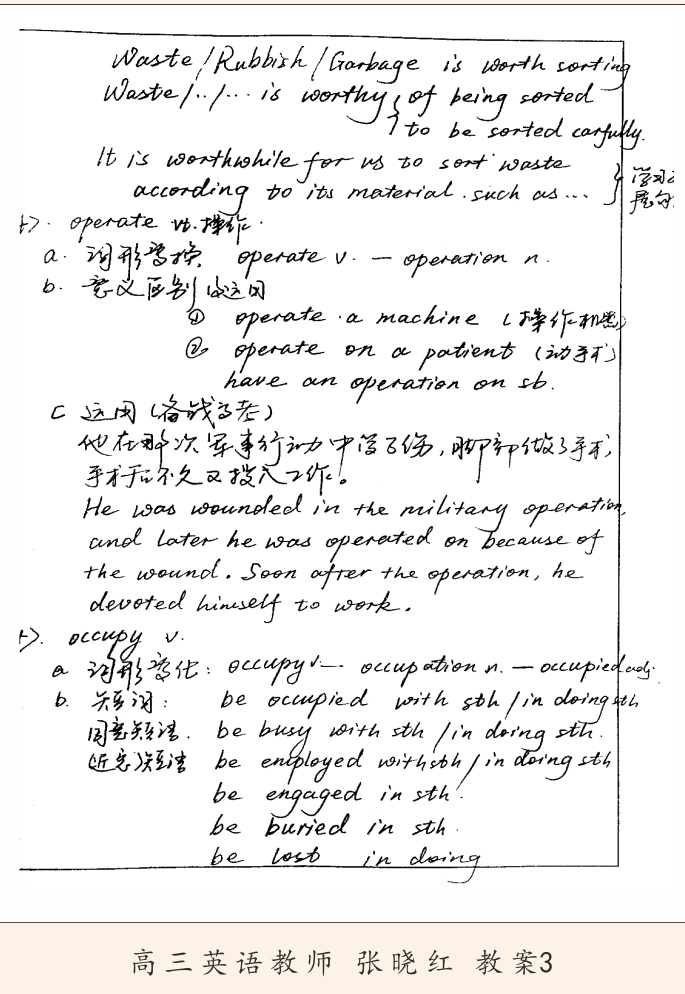 Waste/Rubbish/Garbage is worth sorting
Waste/../... is worthy { of being sorted
to be sorted carfully.
It is worthwhile for us to sort waste
according to its material. such as ... }
operate vt. 操作.
a. 词形变换 operate v. — operation n.
b. 意义区别及运用
① operate a machine (操作机器)
② operate on a patient (动手术)
have an operation on sb.
c 运用(备战高考)
他在那次军事行动中受了伤,脚部做了手术,
手术后不久又投入工作。
He was wounded in the military operation,
and later he was operated on because of
the wound. Soon after the operation, he
devoted himself to work.
occupy v.
a 词形变化: occupy v — occupation n. — occupied adj.
b. 短词: be occupied with sth / in doing sth
同意短语. be busy with sth / in doing sth.
(近意)短语 be employed with sth / in doing sth
be engaged in sth.
be buried in sth.
be lost in doing
高三英语教师 张晓红 教案3